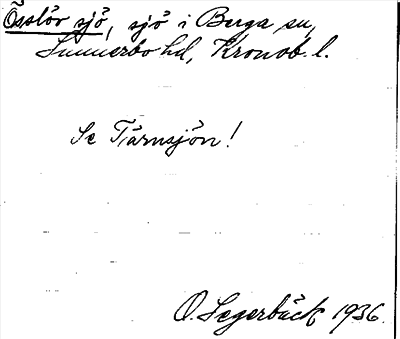 Össlöv sjö, sjö i Berga sn,
Sunnerbo hd, Kronob. l.
Se Tärnsjön!
O. Segerbäck 1936.